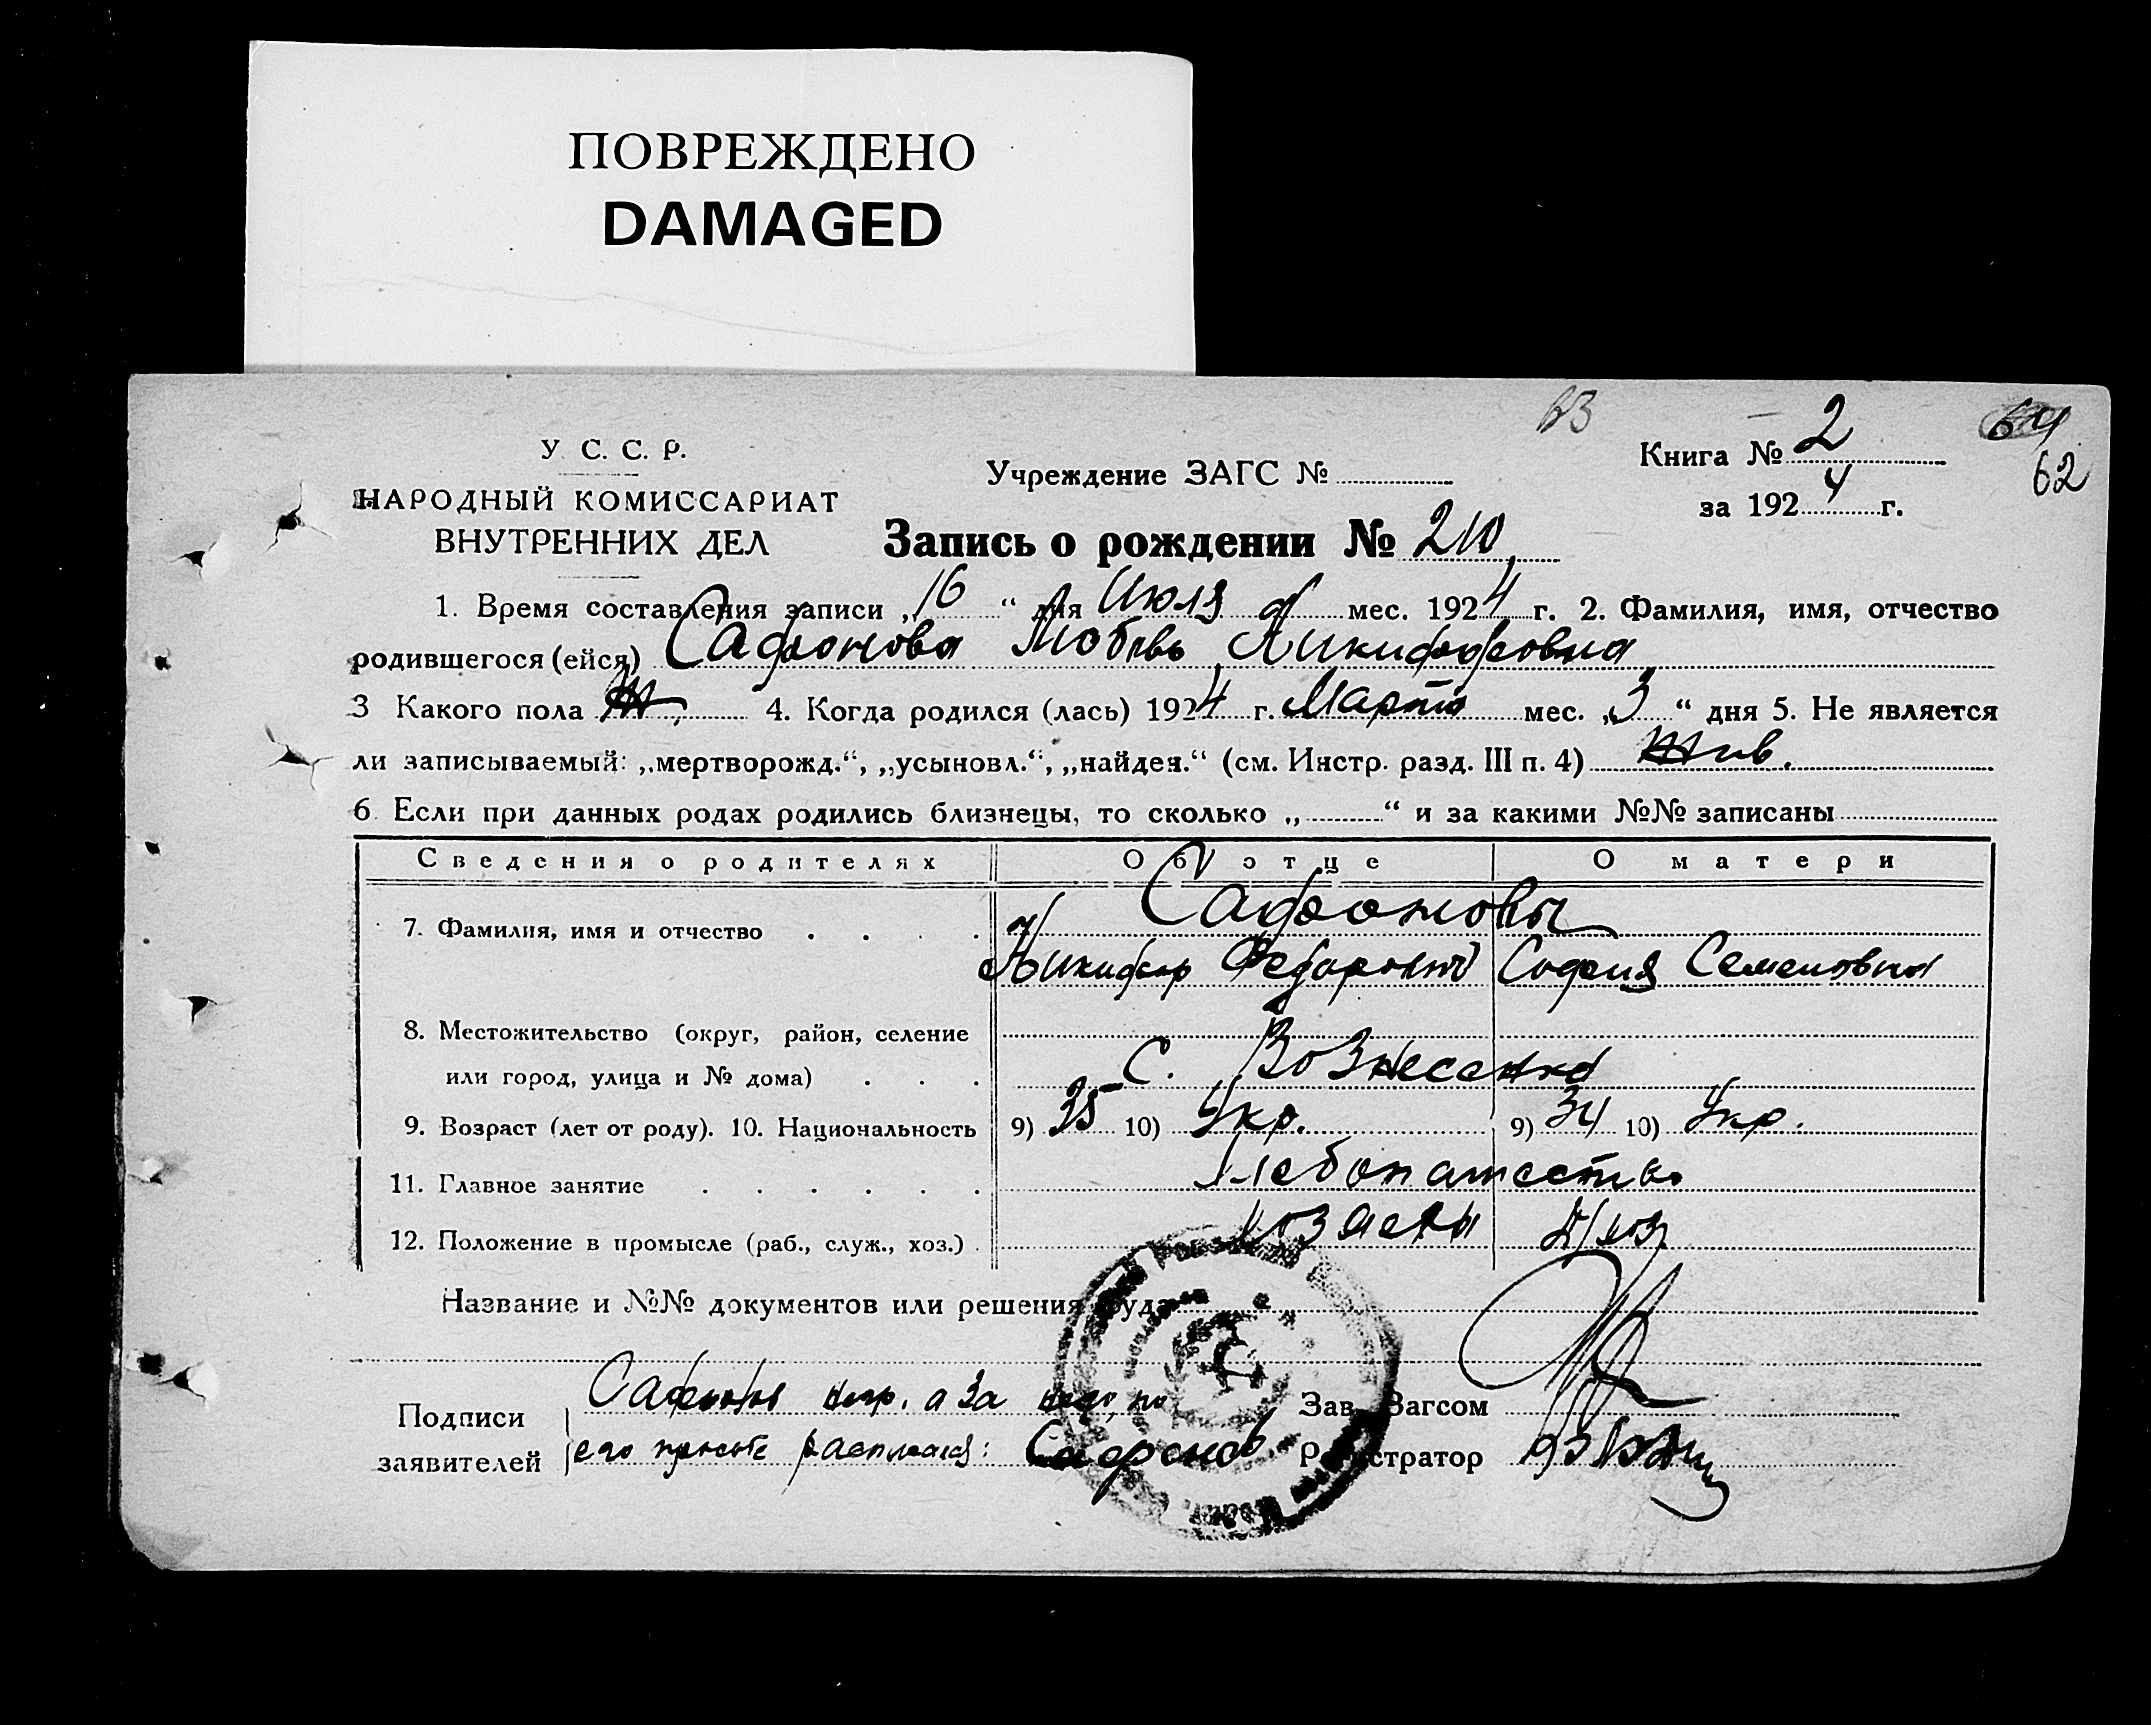 ПОВРЕЖДЕНО
DAMAGED
63
64
62
У. С. С. Р.
НАРОДНЫЙ КОМИССАРИАТ
ВНУТРЕННИХ ДЕЛ
Учреждение ЗАГС №
Книга № 2
за 1924 г.
Запись о рождении № 210
1. Время составления записи „16“ дня Июля мес. 1924 г. 2. Фамилия, имя, отчество
родившегося (ейся) Сафронова Любовь Никифоровна
3 Какого пола Ж. 4. Когда родился (лась) 1924 г. Марта мес. „3“ дня 5. Не является
ли записываемый: „мертворожд.“, „усыновл.“, „найден.“ (см. Инстр. разд. III п. 4) Жив.
6. Если при данных родах родились близнецы, то сколько „ “ и за какими №№ записаны
Сведения о родителях Об отце О матери
7. Фамилия, имя и отчество Сафроновы
Никифор Федорович София Семеновна
8. Местожительство (округ, район, селение
или город, улица и № дома) С. Вознесенка
9. Возраст (лет от роду). 10. Национальность 9) 35 10) Укр. 9) 34 10) Укр.
11. Главное занятие Хлебопашество
12. Положение в промысле (раб., служ., хоз.) Д/хоз.
Название и №№ документов или решения суда
Подписи заявителей
Сафронов негр. а за него по
его просьбе расписался: Сафронов
Зав. Загсом
Регистратор